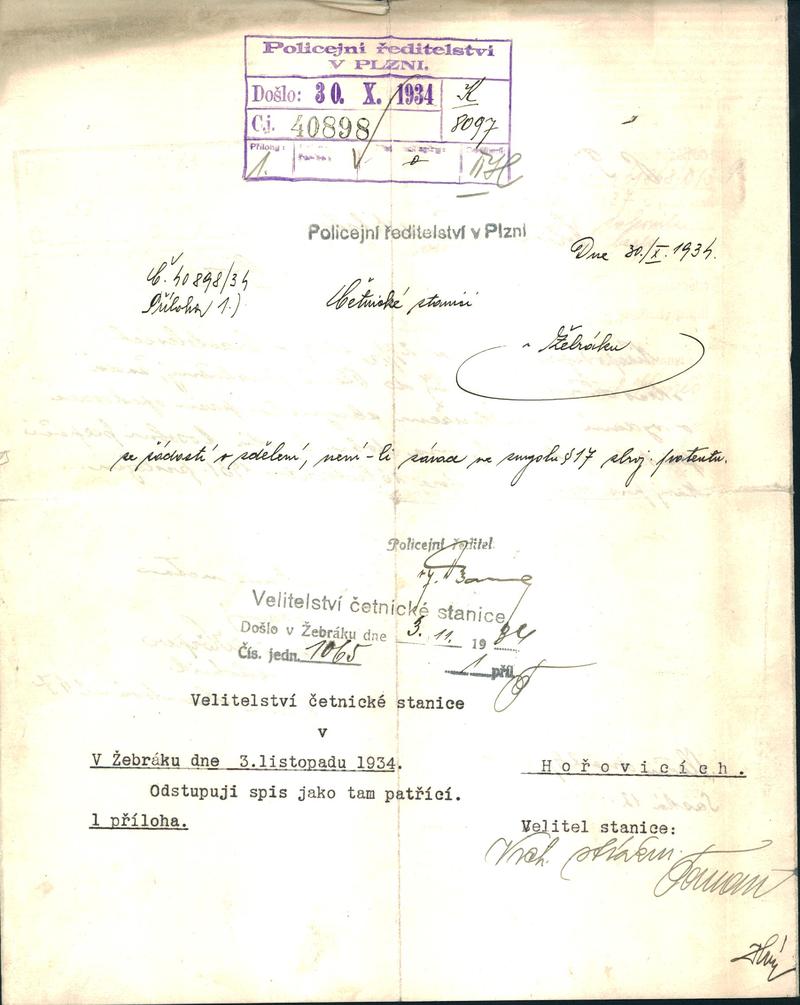 Policejní ředitelství
V PLZNI.
Došlo: 30. X. 1934
K
8097
Č.j. 40898/
Přílohy:
1.
Policejní ředitelství v Plzni
Dne 30./X. 1934.
Č. 40898/34
Příloha 1.)
Četnické stanici
v Žebráku
se žádostí o sdělení, není-li závad ve smyslu § 17 zbroj. patentu.
Policejní ředitel
Velitelství četnické stanice
Došlo v Žebráku dne 3. 11. 1934
Čís. jedn. 1065
1 příl.
Velitelství četnické stanice
v
V Žebráku dne 3.listopadu 1934.
Hořovicích.
Odstupuji spis jako tam patřící.
1 příloha.
Velitel stanice:
Vrch. strážm.